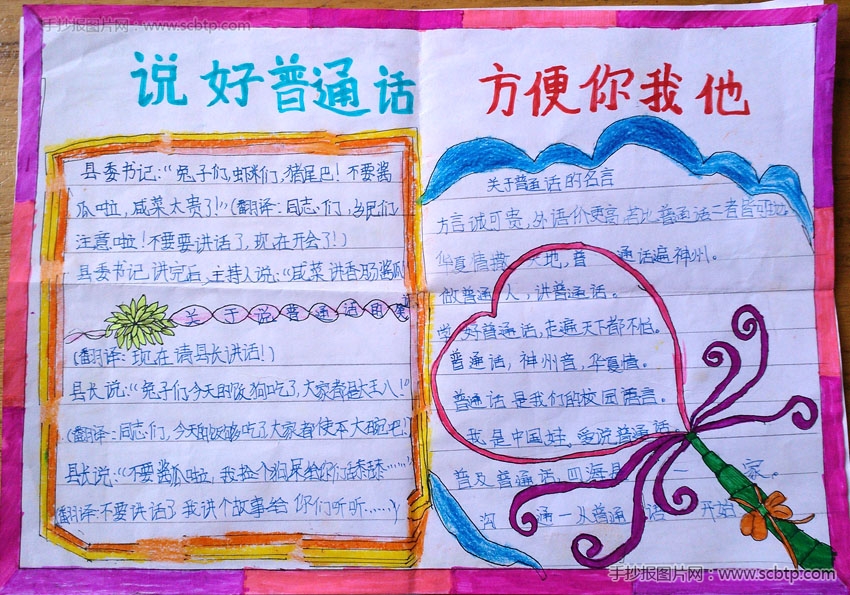 手抄报图片网：www.scbtp.com
说好普通话 方便你我他
县委书记：“兔子们，虾咪们，猪尾巴！不要酱
瓜啦，咸菜太贵了！”（翻译：同志们，乡民们
注意啦！不要讲话了，现在开会了！）
县委书记讲完后，主持人说：“咸菜请香肠酱瓜
关于说普通话的笑
（翻译：现在请县长讲话！）
县长说：“兔子们，今天的饭狗吃了，大家都是大王八！”
（翻译：同志们，今天的饭够吃了大家都使大碗吧！
县长说：“不要酱瓜啦，我捡个狗屎给你们舔舔……
（翻译：不要讲话了我讲个故事给你们听听……）
关于普通话的名言
方言诚可贵，外语价更高，若比普通话二者皆可
华夏情 地，普 通话遍神州。
做普通人，讲普通话。
学好普通话，走遍天下都不怕。
普通话，神州音，华夏情。
普通话是我们的校园语言。
我是中国娃，爱说普通话。
普及普通话，四海 一家。
沟 通—从普通话 开始
手抄报图片网：www.scbtp.com